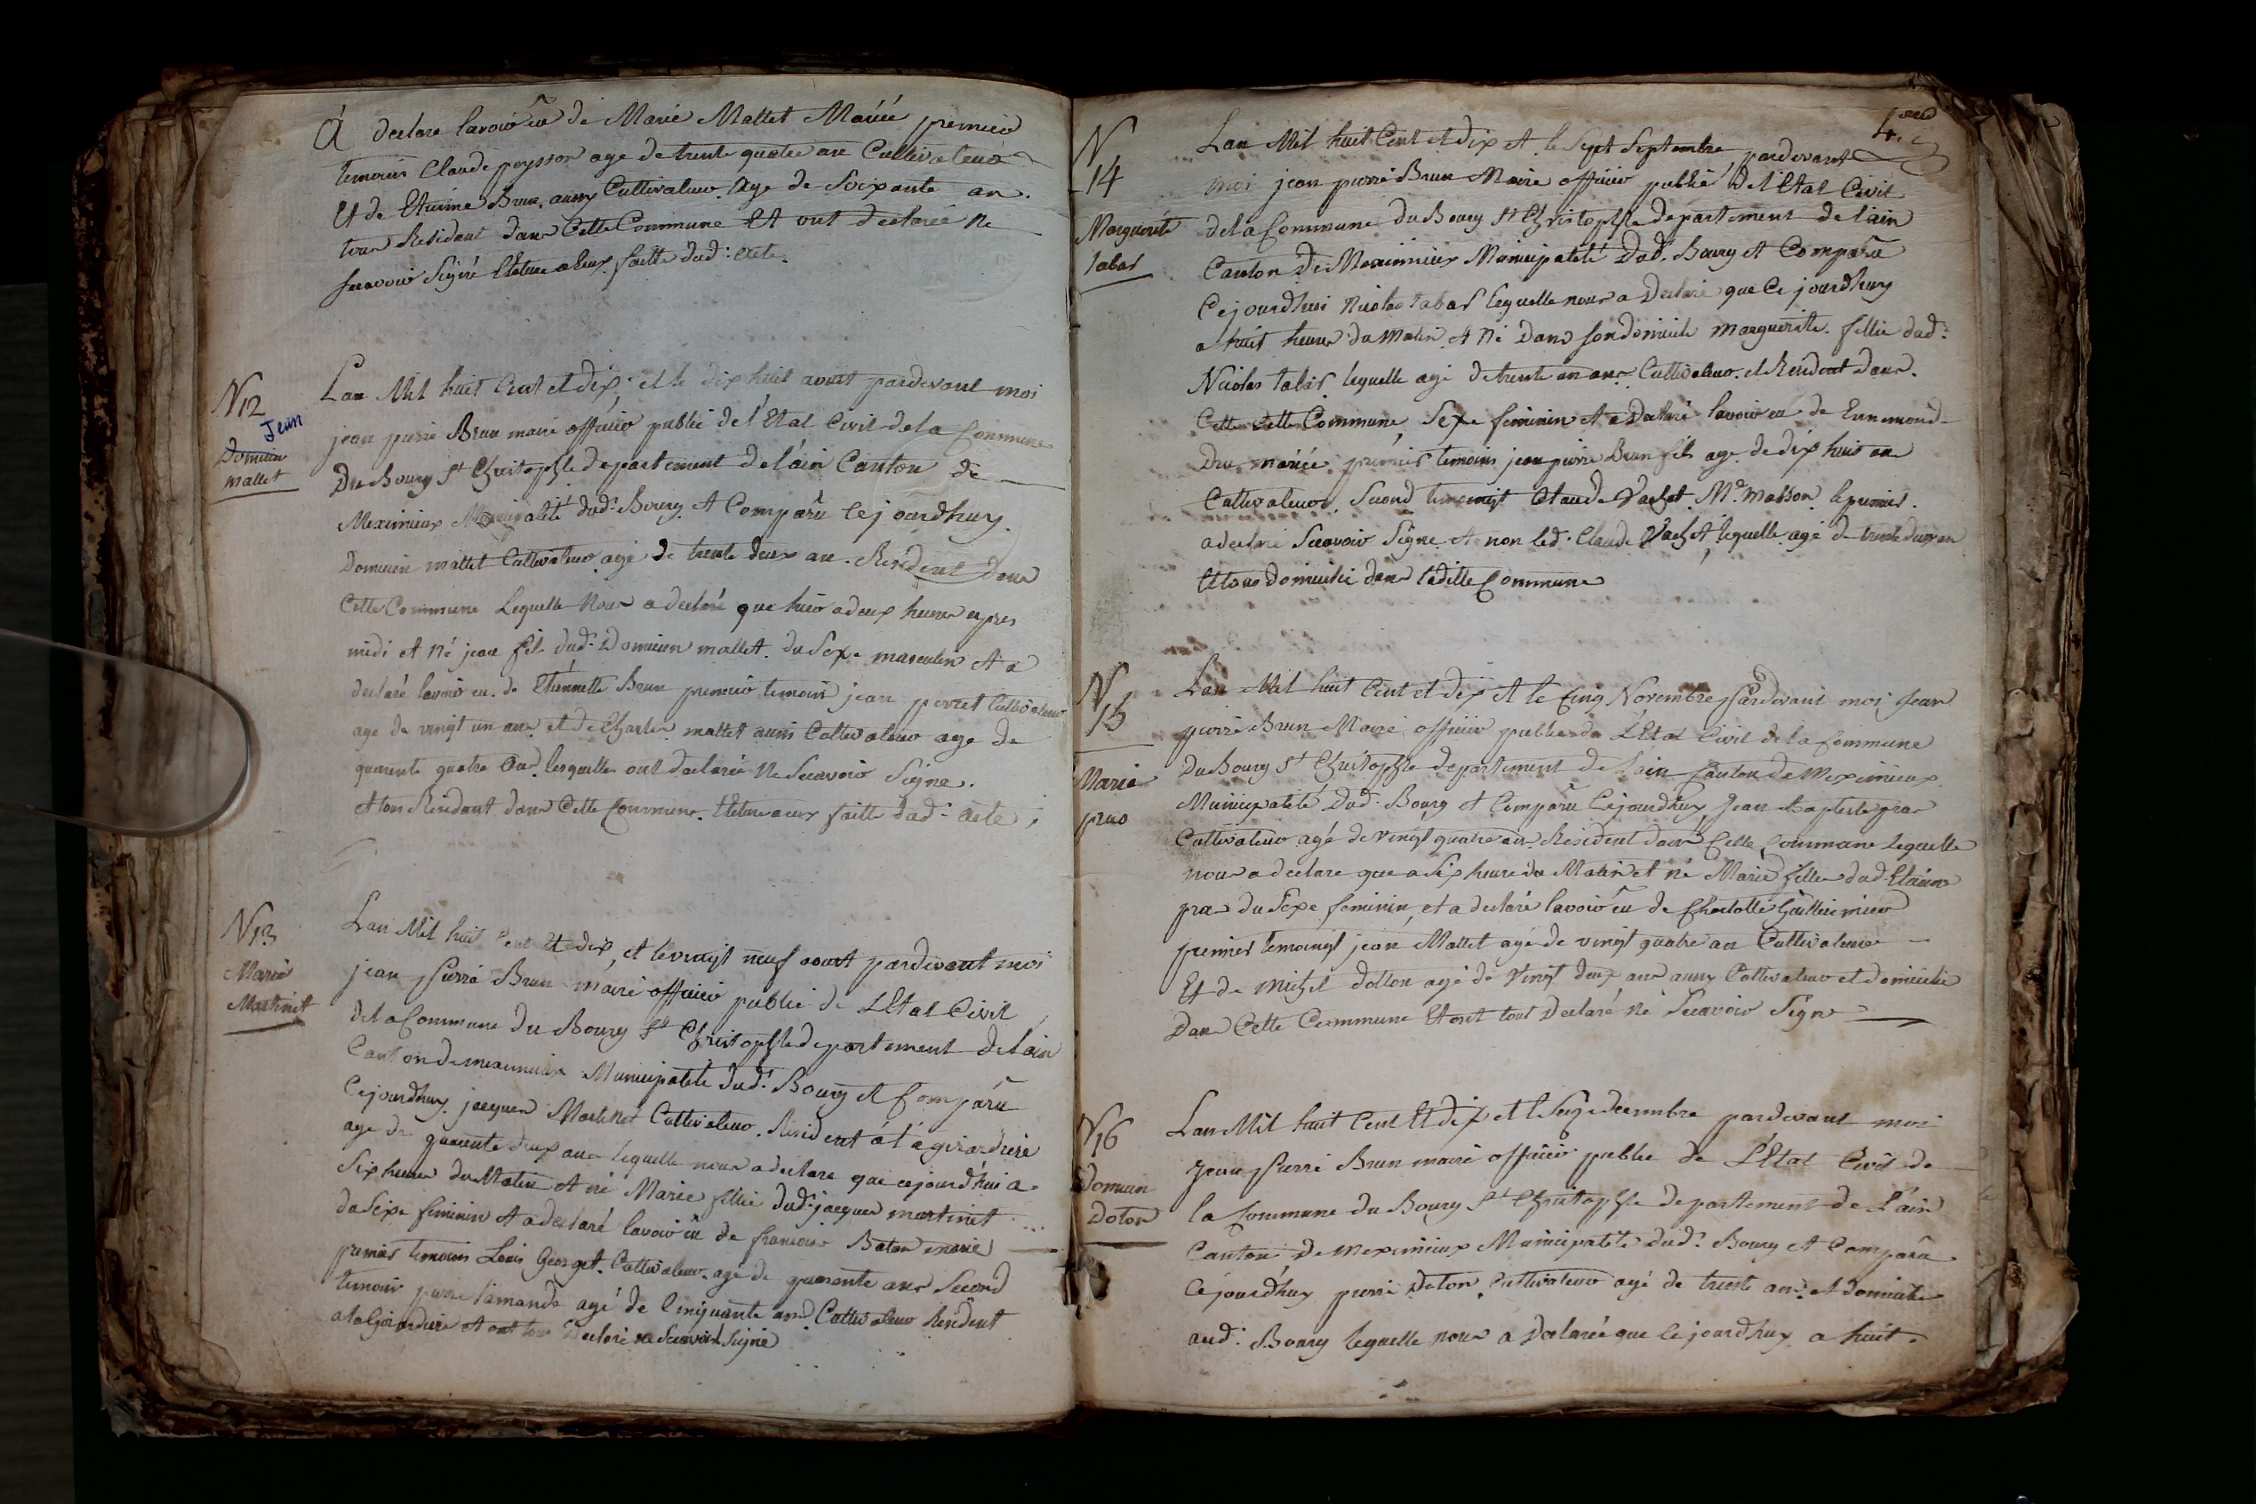 A declare lavoir eu de Marie Mallet Mariée premier
temoin Claude peysson age de trente quatre an Cultivateur
Et de Etienne Brun aussy Cultivateur Age de Soixante an
tous Resident dans Cette Commune Et ont declaree ne
scavoir Signé lecture a eux faitte dud: acte.
N 12
Jean
Domicien
mallet
Lan Mil huit Cent et dix, et le dix huit aoust pardevant moi
jean pierre Brun maire officier public de l'Etat Civil de la Commune
Du Bourg St Christophle departement de lain Canton de
Meximieux Municipalité dud: Bourg Et Comparu Cejourdhuy
Domicien mallet Cultivateur agé de trente deux an. Résident dans
Cette Commune Lequelle Nous a declaré que hier a deux heure apres
midi et né jean fils dud: Domicien mallet du Sexe masculin et a
declaré lavoir eu de Etiennette Brun premier temoin jean perret Cultivateur
age de vingt un ans et de Charles mallet aussi Cultivateur age de
quarente quatre ans lesquelles ont declarée Ne Scavoir Signe.
et tous Résidant dans Cette Commune. lecture a eux faitte dud: acte;
N 13
Marie
Martinet
Lan Mil huit Cent Et dix, et le vingt neuf aoust pardevant moi
jean Pierre Brun maire officier public de LEtat Civil
de la Commune du Bourg St Christophle departement de lain
Canton de meximieux Municipalité dud: Bourg Et Comparu
Cejourdhuy jacques Martinet Cultivateur. Résident à la girardiere
age de quarente deux ans lequelle nous a declare que cejourdhui a
Six heures du Matin Et né Marie fillie dud: jacques martinet
du Sexe feminin et a declaré lavoir eu de francoise Baton mariée
premier temoin Louis Georget. Cultivateur. agé de quarente ans Second
temoin pierre agé de Cinquante ans Cultivateur Résident
a la Girardiere et ont tous Declaré ne Scavoir Signé
N
14
Marguerite
tabar
Lan Mil huit Cent et dix et le Sept Septembre pardevant
moi jean pierre Brun Maire officier public de l'Etat Civil
de la Commune du Bourg St Christophle departement de lain
Canton De Meximieux Municipalité Dud: Bourg et Comparu
Cejourdhui Nicolas tabar lequelle nous a Declaré que Ce jourdhuy
a huit heures du Matin et né Dans son domicile Marguerite fillie dud:
Nicolas tabar lequelle agé de trente un ans Cultivateur et Résidant dans
Cette Cette Commune, Sexe feminin et a Declaré lavoir eu de Ennemonde
Dru mariée premier temoins jean pierre Brun fils age de dix huit an
Cultivateur Second temoingt Claude Vachet Md Masson le premier
a declaré Scavoir Signe et non led: Claude Vachet, lequelle agé de trente deux an
et tous domicilié dans ladite Commune
N
15
Marie
pras
Lan Mil huit Cent et dix et le Cinq Novembre Pardevant moi Jean
pierre Brun Maire officier public de LEtat Civil de la Commune
Du Bourg St Christophle departement de lain Canton de Meximieux
Municipalité Dud: Bourg et Comparu Cejourdhuy Jean Baptiste pras
Cultivateur agé de vingt quatre ans Résident dans Cette Commune Lequelle
nous a declare que a Six heure du Matin et né Marie fillie dud
pras du Sexe feminin, et a declaré lavoir eu de Charlotte
premier temoingt jean Mallet agé de vingt quatre an Cultivateur
Et de Michel dotton agé de Vingt deux ans aussy Cultivateur et domicilié
Dans Cette Commune Et ont tout Declaré ne Scavoir Signe
N
16
Domian
Doton
Lan Mil huit Cent Et dix et le Seize decembre pardevant moi
Jean Pierre Brun maire officier public de L'Etat Civil de
la Commune du Bourg St Christophle departement de L'ain
Canton De Meximieux Municipalité dud: Bourg et Comparu
Cejourdhuy pierre Doton Cultivateur agé de trente ans et domicilié
aud: Bourg lequelle nous a Declarée que Cejourdhuy a huit